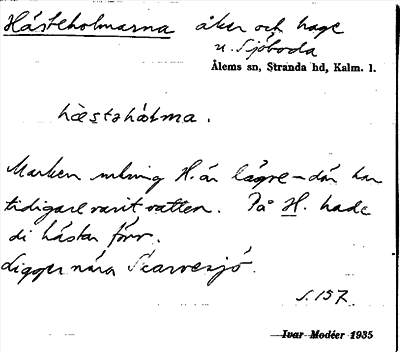 Hästeholmarna åker och hage
u. Sjöboda
Ålems sn, Stranda hd, Kalm. l.
hæstəhålma.
Marken omkring H. är lägre – där har
tidigare varit vatten. På H. hade
di hästar förr.
Ligger nära Skarvesjö.
S. 157.
Ivar Modéer 1935